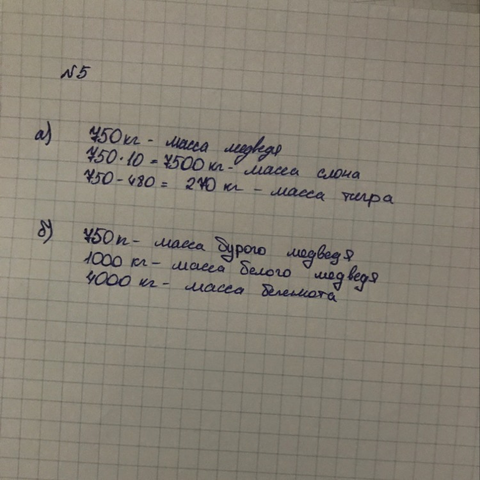 №5
а) 750 кг - масса медведя
750 · 10 = 7500 кг - масса слона
750 - 480 = 270 кг - масса тигра
б) 750 п - масса бурого медведя
1000 кг - масса белого медведя
4000 кг - масса бегемота